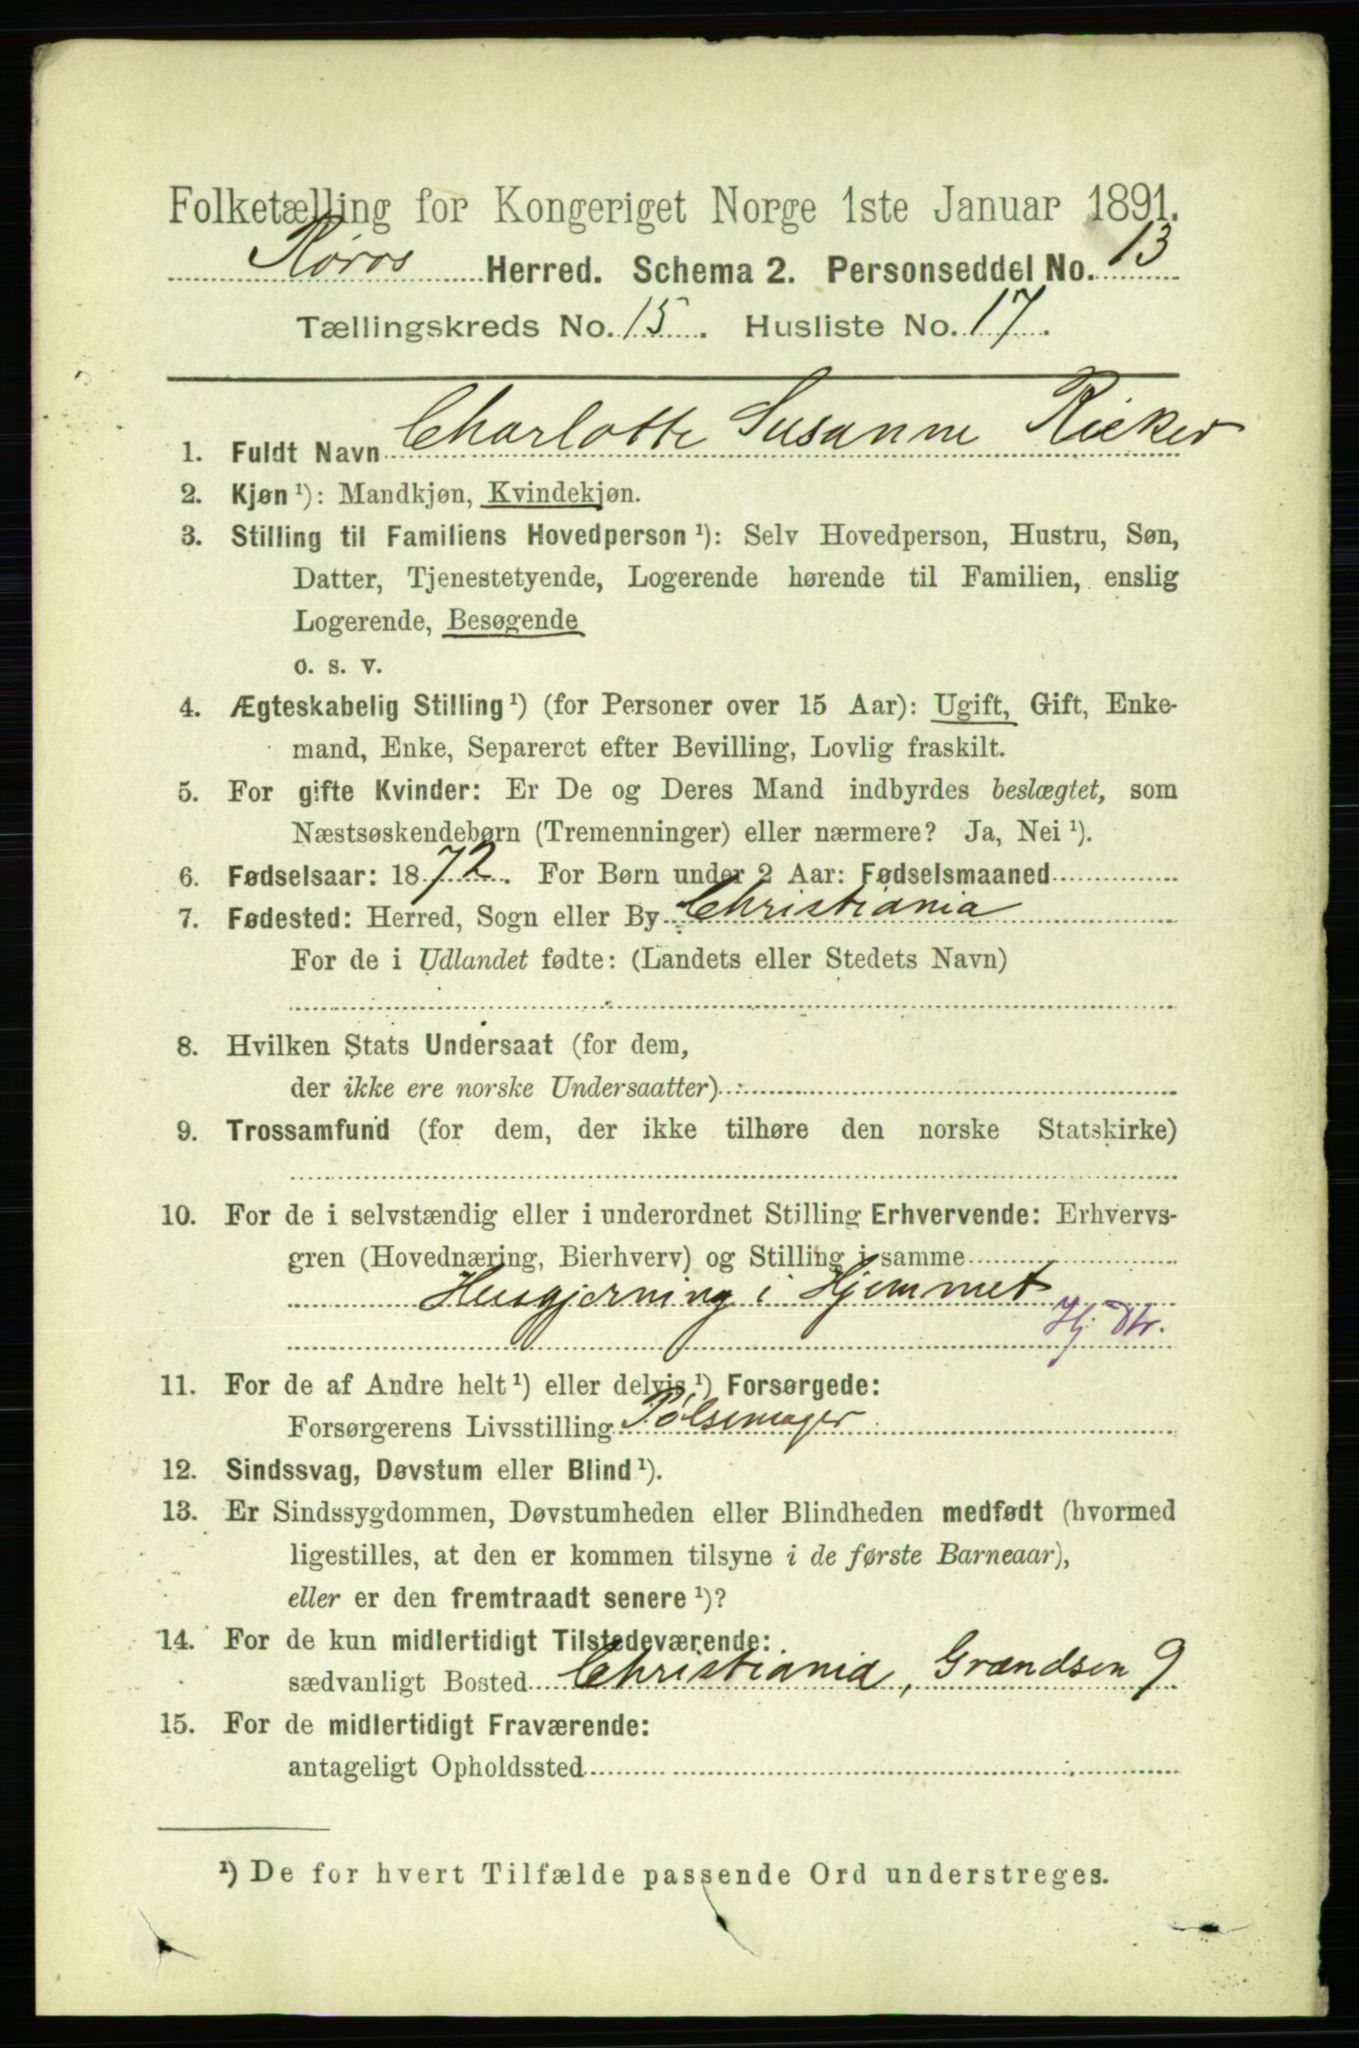 Folketælling for Kongeriget Norge 1ste Januar 1891.
Røros Herred. Schema 2. Personseddel No. 13
Tællingskreds No. 15. Husliste No. 17.
1. Fuldt Navn Charlotte Susanne Rieker
2. Kjøn ¹): Mandkjøn, Kvindekjøn.
3. Stilling til Familiens Hovedperson ¹): Selv Hovedperson, Hustru, Søn,
Datter, Tjenestetyende, Logerende hørende til Familien, enslig
Logerende, Besøgende
o. s. v.
4. Ægteskabelig Stilling ¹) (for Personer over 15 Aar): Ugift, Gift, Enke-
mand, Enke, Separeret efter Bevilling, Lovlig fraskilt.
5. For gifte Kvinder: Er De og Deres Mand indbyrdes beslægtet, som
Næstsøskendebørn (Tremenninger) eller nærmere? Ja, Nei ¹).
6. Fødselsaar: 1872. For Børn under 2 Aar: Fødselsmaaned
7. Fødested: Herred, Sogn eller By Christiania
For de i Udlandet fødte: (Landets eller Stedets Navn)
8. Hvilken Stats Undersaat (for dem,
der ikke ere norske Undersaatter)
9. Trossamfund (for dem, der ikke tilhøre den norske Statskirke)
10. For de i selvstændig eller i underordnet Stilling Erhvervende: Erhvervs-
gren (Hovednæring, Bierhverv) og Stilling i samme
Husgjerning i Hjemmet
Hj. Dtr.
11. For de af Andre helt ¹) eller delvis ¹) Forsørgede:
Forsørgerens Livsstilling Pølsemager
12. Sindssvag, Døvstum eller Blind ¹).
13. Er Sindssygdommen, Døvstumheden eller Blindheden medfødt (hvormed
ligestilles, at den er kommen tilsyne i de første Barneaar),
eller er den fremtraadt senere ¹)?
14. For de kun midlertidigt Tilstedeværende:
sædvanligt Bosted Christiania, Grændsen 9
15. For de midlertidigt Fraværende:
antageligt Opholdssted
¹) De for hvert Tilfælde passende Ord understreges.